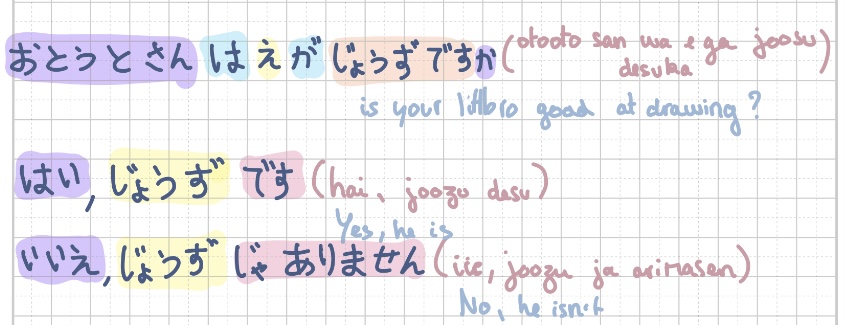 おとうとさん は え が じょうずですか (otooto san wa e ga joosu
desuka)
is your lil bro good at drawing?
はい, じょうず です (hai, joozu desu)
Yes, he is
いいえ, じょうず じゃ ありません (iie, joozu ja arimasen)
No, he isn't